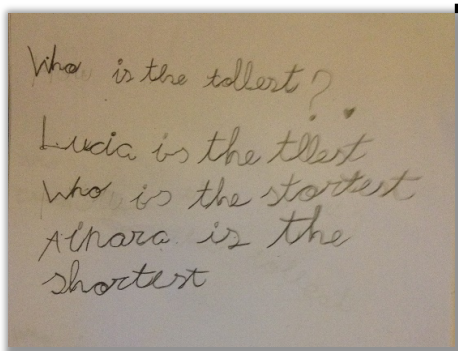 Who is the tallest?
Lucia is the tllest
Who is the stortest
Ainara is the
shortest